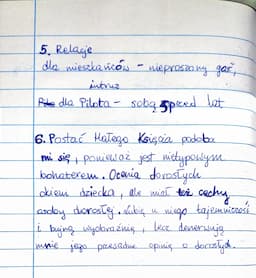 5. Relacje
dla mieszkańców - nieproszony gość,
intruz
dla Pilota - sobą sprzed lat
6. Postać Małego Księcia podoba
mi się, ponieważ jest nietypowym
bohaterem. Ocenia dorosłych
okiem dziecka, ale mieł też cechy
osoby dorosłej. Lubię w nim tajemniczość
i bujną wyobraźnię, lecz denerwują
mnie jego przesadne opinie o dorosłych.